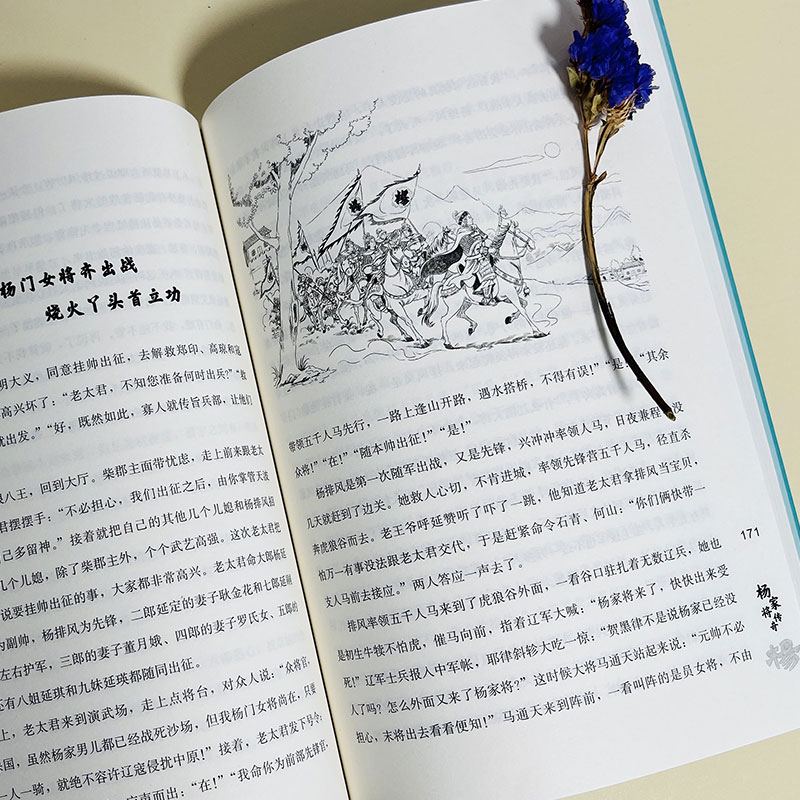 杨门女将齐出战
烧火丫头首立功
明大义，同意挂帅出征，去解救郑印、高琼和寇
高兴坏了：“老太君，不知您准备何时出兵？”“救
就出发。”“好，既然如此，寡人就传旨兵部，让他们
八王，回到大厅。柴郡主面带忧虑，走上前来跟老太
君摆摆手：“不必担心，我们出征之后，由你掌管天波
己多留神。”接着就把自己的其他几个儿媳和杨排风
几个儿媳，除了柴郡主外，个个武艺高强。这次老太君想
说要挂帅出征的事，大家都非常高兴。老太君命大郎杨延
为副帅，杨排风为先锋，二郎延定的妻子耿金花和七郎延嗣
左右护军，三郎的妻子董月娥、四郎的妻子罗氏女、五郎的
还有八姐延琪和九妹延瑛都随同出征。
上，老太君来到演武场，走上点将台，对众人说：“众将官，
国，虽然杨家男儿都已经战死沙场，但我杨门女将尚在，只要
一人一骑，就绝不容许辽寇侵扰中原！”接着，老太君发下号令：
应声而出：“在！”“我命你为前部先锋官，
杨
带领五千人马先行，一路上逢山开路，遇水搭桥，不得有误！”“是！”“其余
众将！”“在！”“随本帅出征！”“是！”
杨排风是第一次随军出战，又是先锋，兴冲冲率领人马，日夜兼程，没
几天就赶到了边关。她救人心切，不肯进城，率领先锋营五千人马，径直杀
奔虎狼谷而去。老王爷呼延赞听了吓了一跳，他知道老太君拿排风当宝贝，
怕万一有事没法跟老太君交代，于是赶紧命令石青、何山：“你们俩快带一
支人马前去接应。”两人答应一声去了。
排风率领五千人马来到了虎狼谷外面，一看谷口驻扎着无数辽兵，她也
是初生牛犊不怕虎，催马向前，指着辽军大喊：“杨家将来了，快快出来受
死！”辽军士兵报入中军帐，耶律斜轸大吃一惊：“贺黑律不是说杨家已经没
人了吗？怎么外面又来了杨家将？”这时候大将马通天站起来说：“元帅不必
担心，末将出去看看便知！”马通天来到阵前，一看叫阵的是员女将，不由
171
杨家将传奇
楊